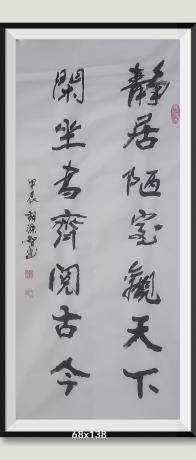 静居陋室觀天下
閑坐书齋阅古今
甲辰
68x138